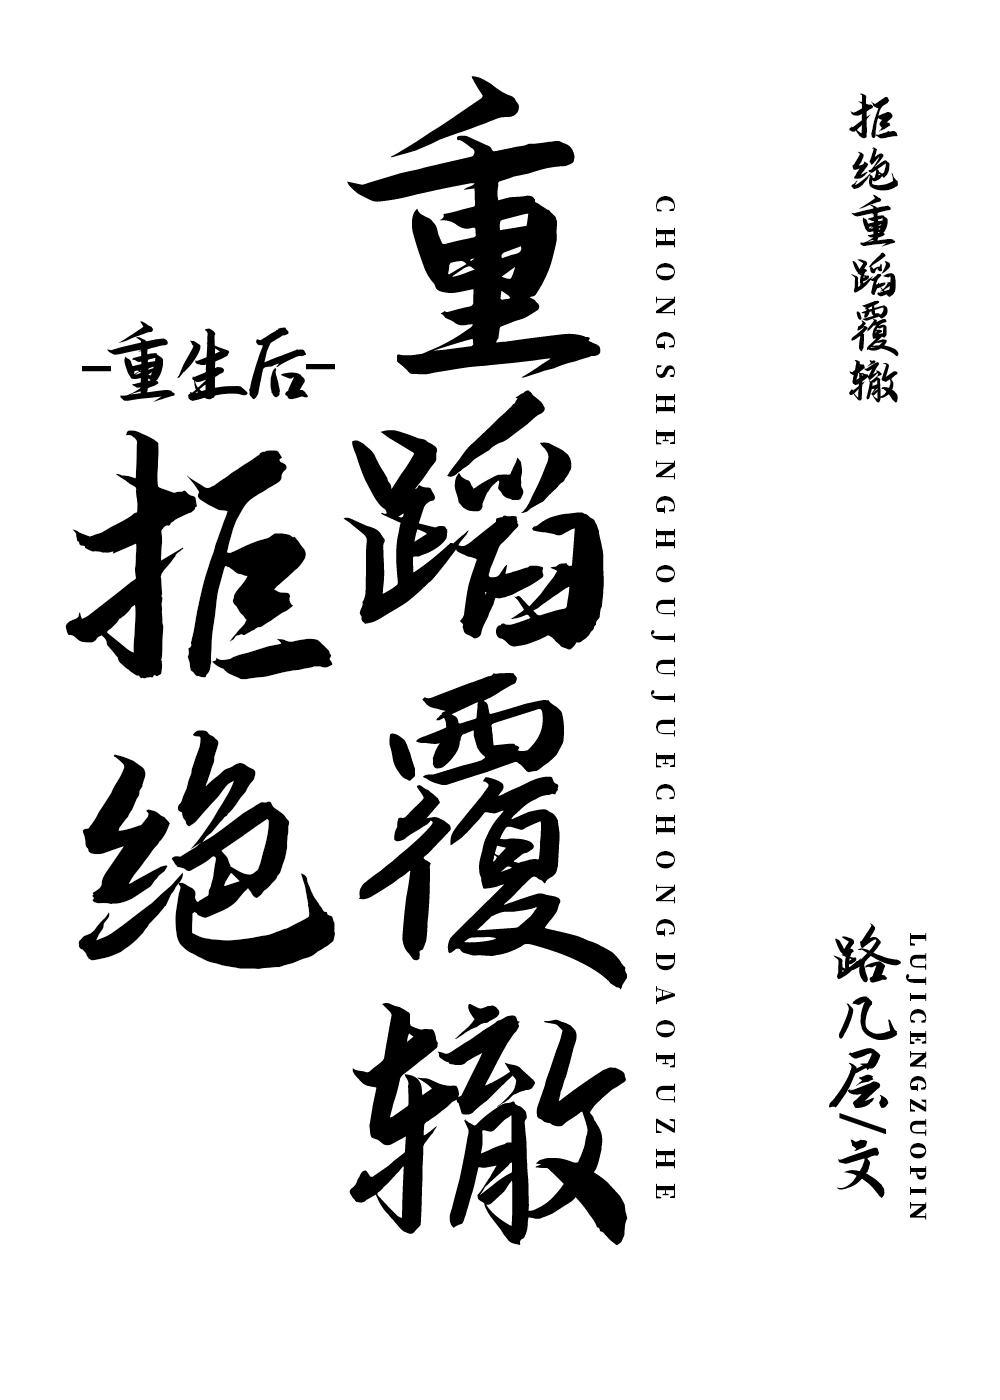 -重生后-
拒绝
重蹈覆辙
CHONGSHENGHOUJUJUECHONGDAOFUZHE
拒绝重蹈覆辙
路几层/文
LUJICENGZUOPIN